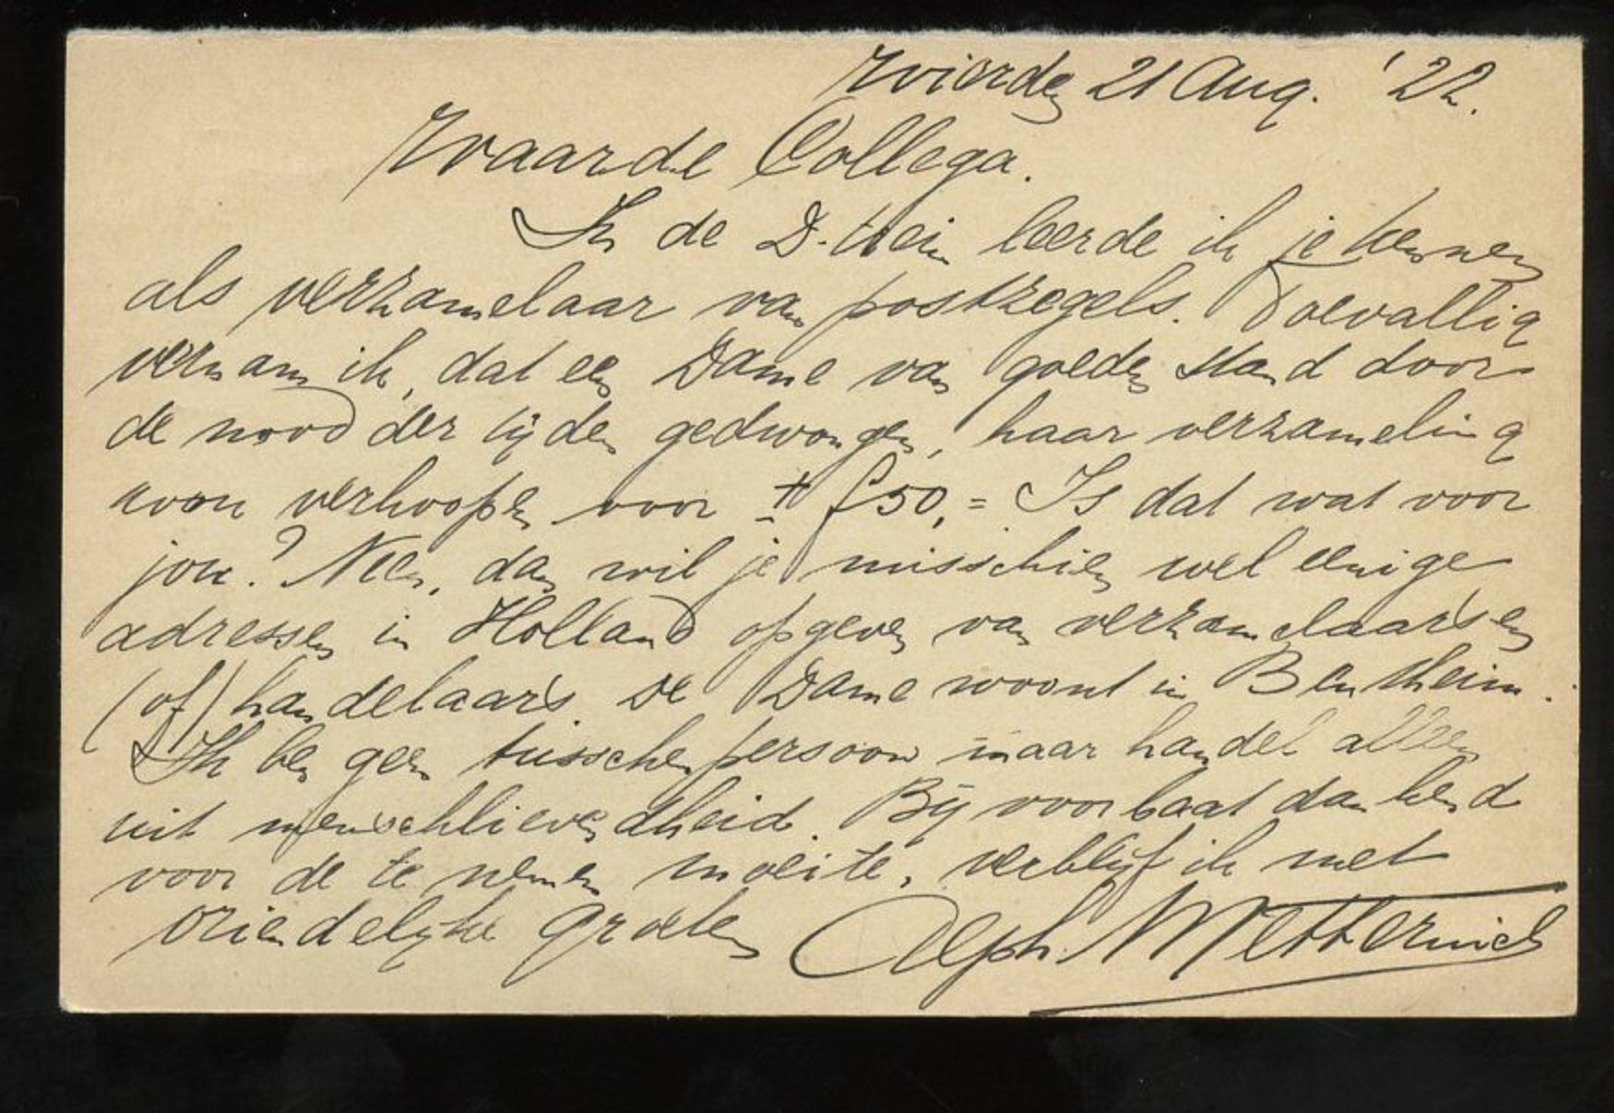 Wierden 21 Aug. '22.
Waarde Collega.
In de D. trein leerde ik je kennen
als verzamelaar van postzegels. Toevallig
vernam ik, dat een Dame van goeden stand door
de nood der tijden gedwongen, haar verzameling
wou verkoopen voor ± f 50,= Is dat wat voor
jou? Neen, dan wil je misschien wel eenige
adressen in Holland opgeven van verzamelaars en
(of) handelaars. De Dame woont in Bentheim.
Ik ben geen tusschenpersoon maar handel alleen
uit menschlievendheid. Bij voorbaat dankend
voor de te nemen moeite, verblijf ik met
vriendelijke groeten Alph. Metternich